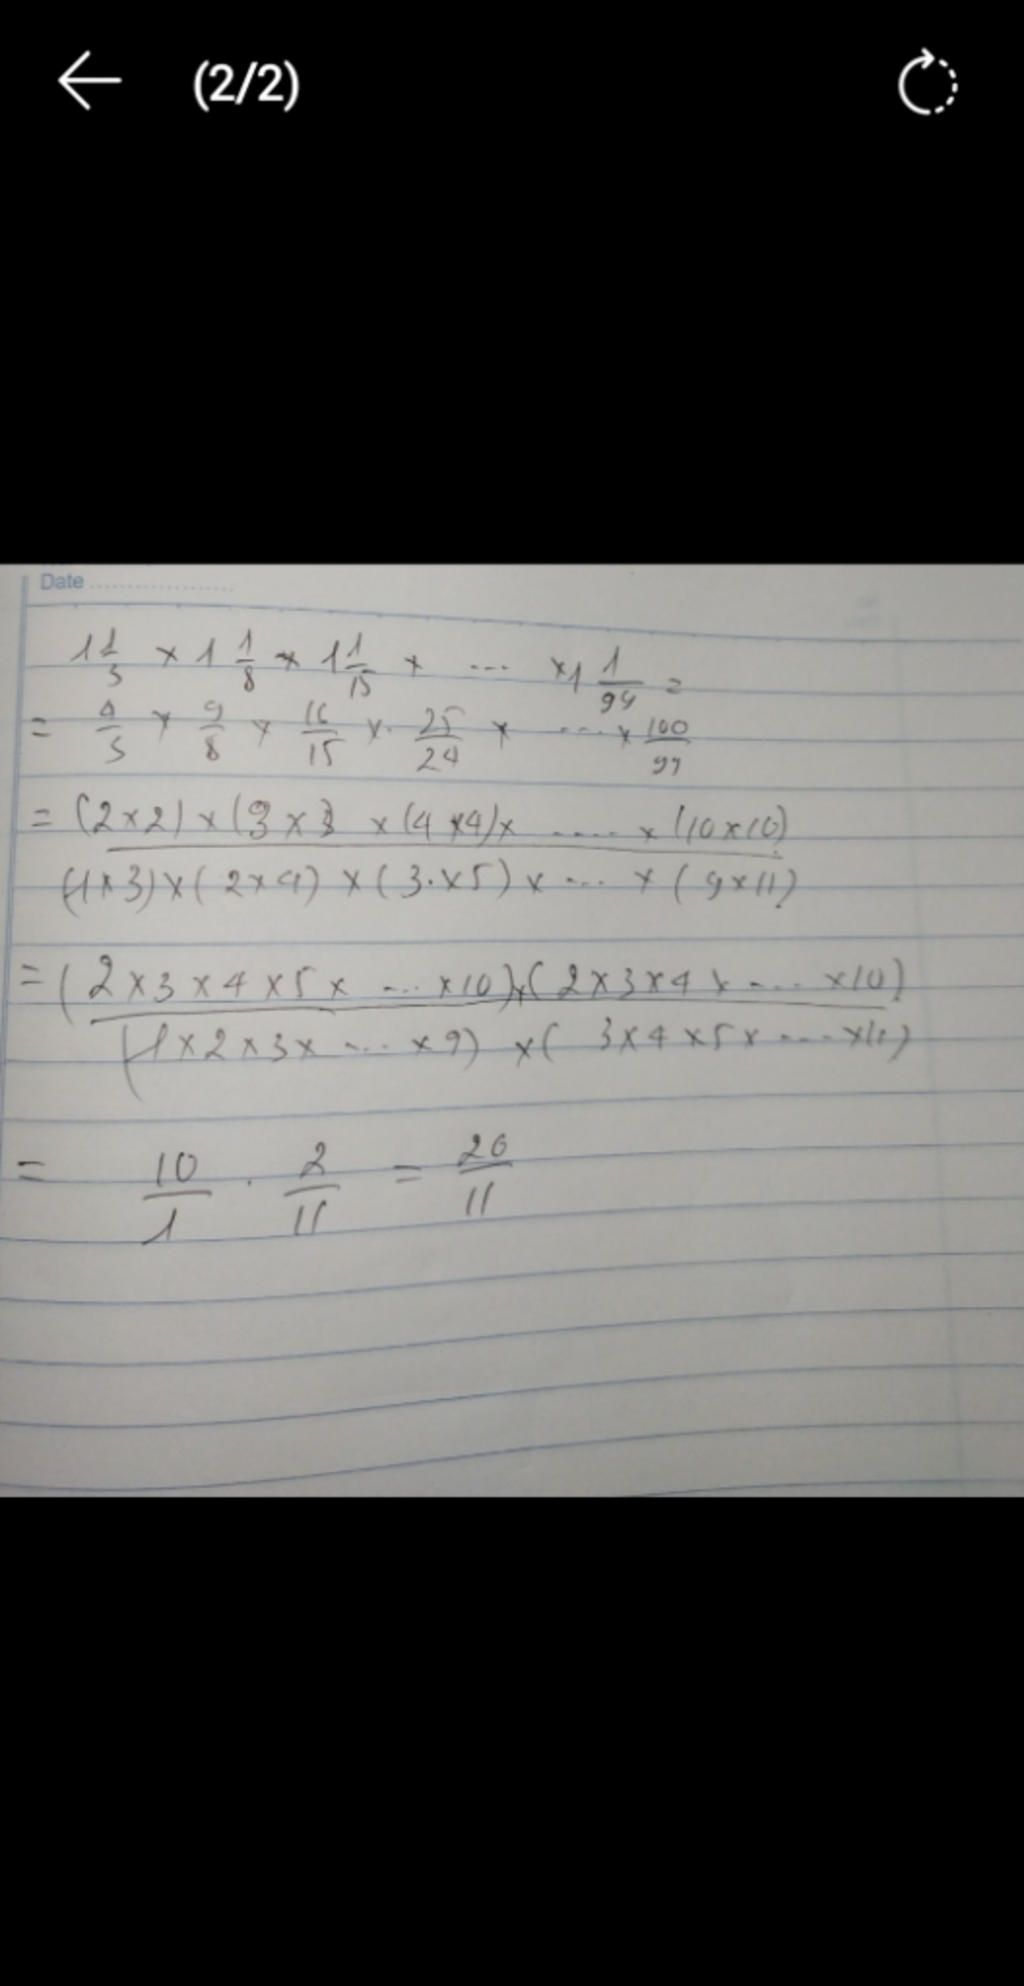 (2/2)
Date ....................
1 1/3 × 1 1/8 × 1 1/15 × ... × 1 1/99 =
= 4/3 × 9/8 × 16/15 × 25/24 × ... × 100/99
= (2×2) × (3×3 × (4×4) × ..... × (10×10)
(1×3) × (2×4) × (3.×5) × ... × (9×11)
= (2×3×4×5× ... ×10) × (2×3×4× .... ×10)
(1×2×3× .... ×9) × ( 3×4×5× .... ×11)
= 10/1 . 2/11 = 20/11